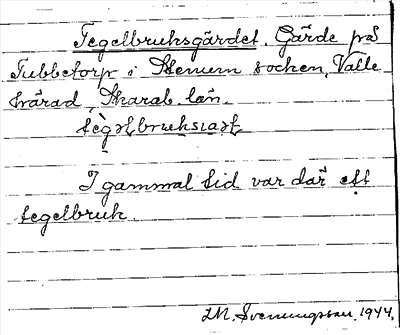 Tegelbruksgärdet. Gärde på
Tubbetorp i Stenum socken, Valle
härad, Skarab. län.
I gammal tid var där ett
tegelbruk.
1944.